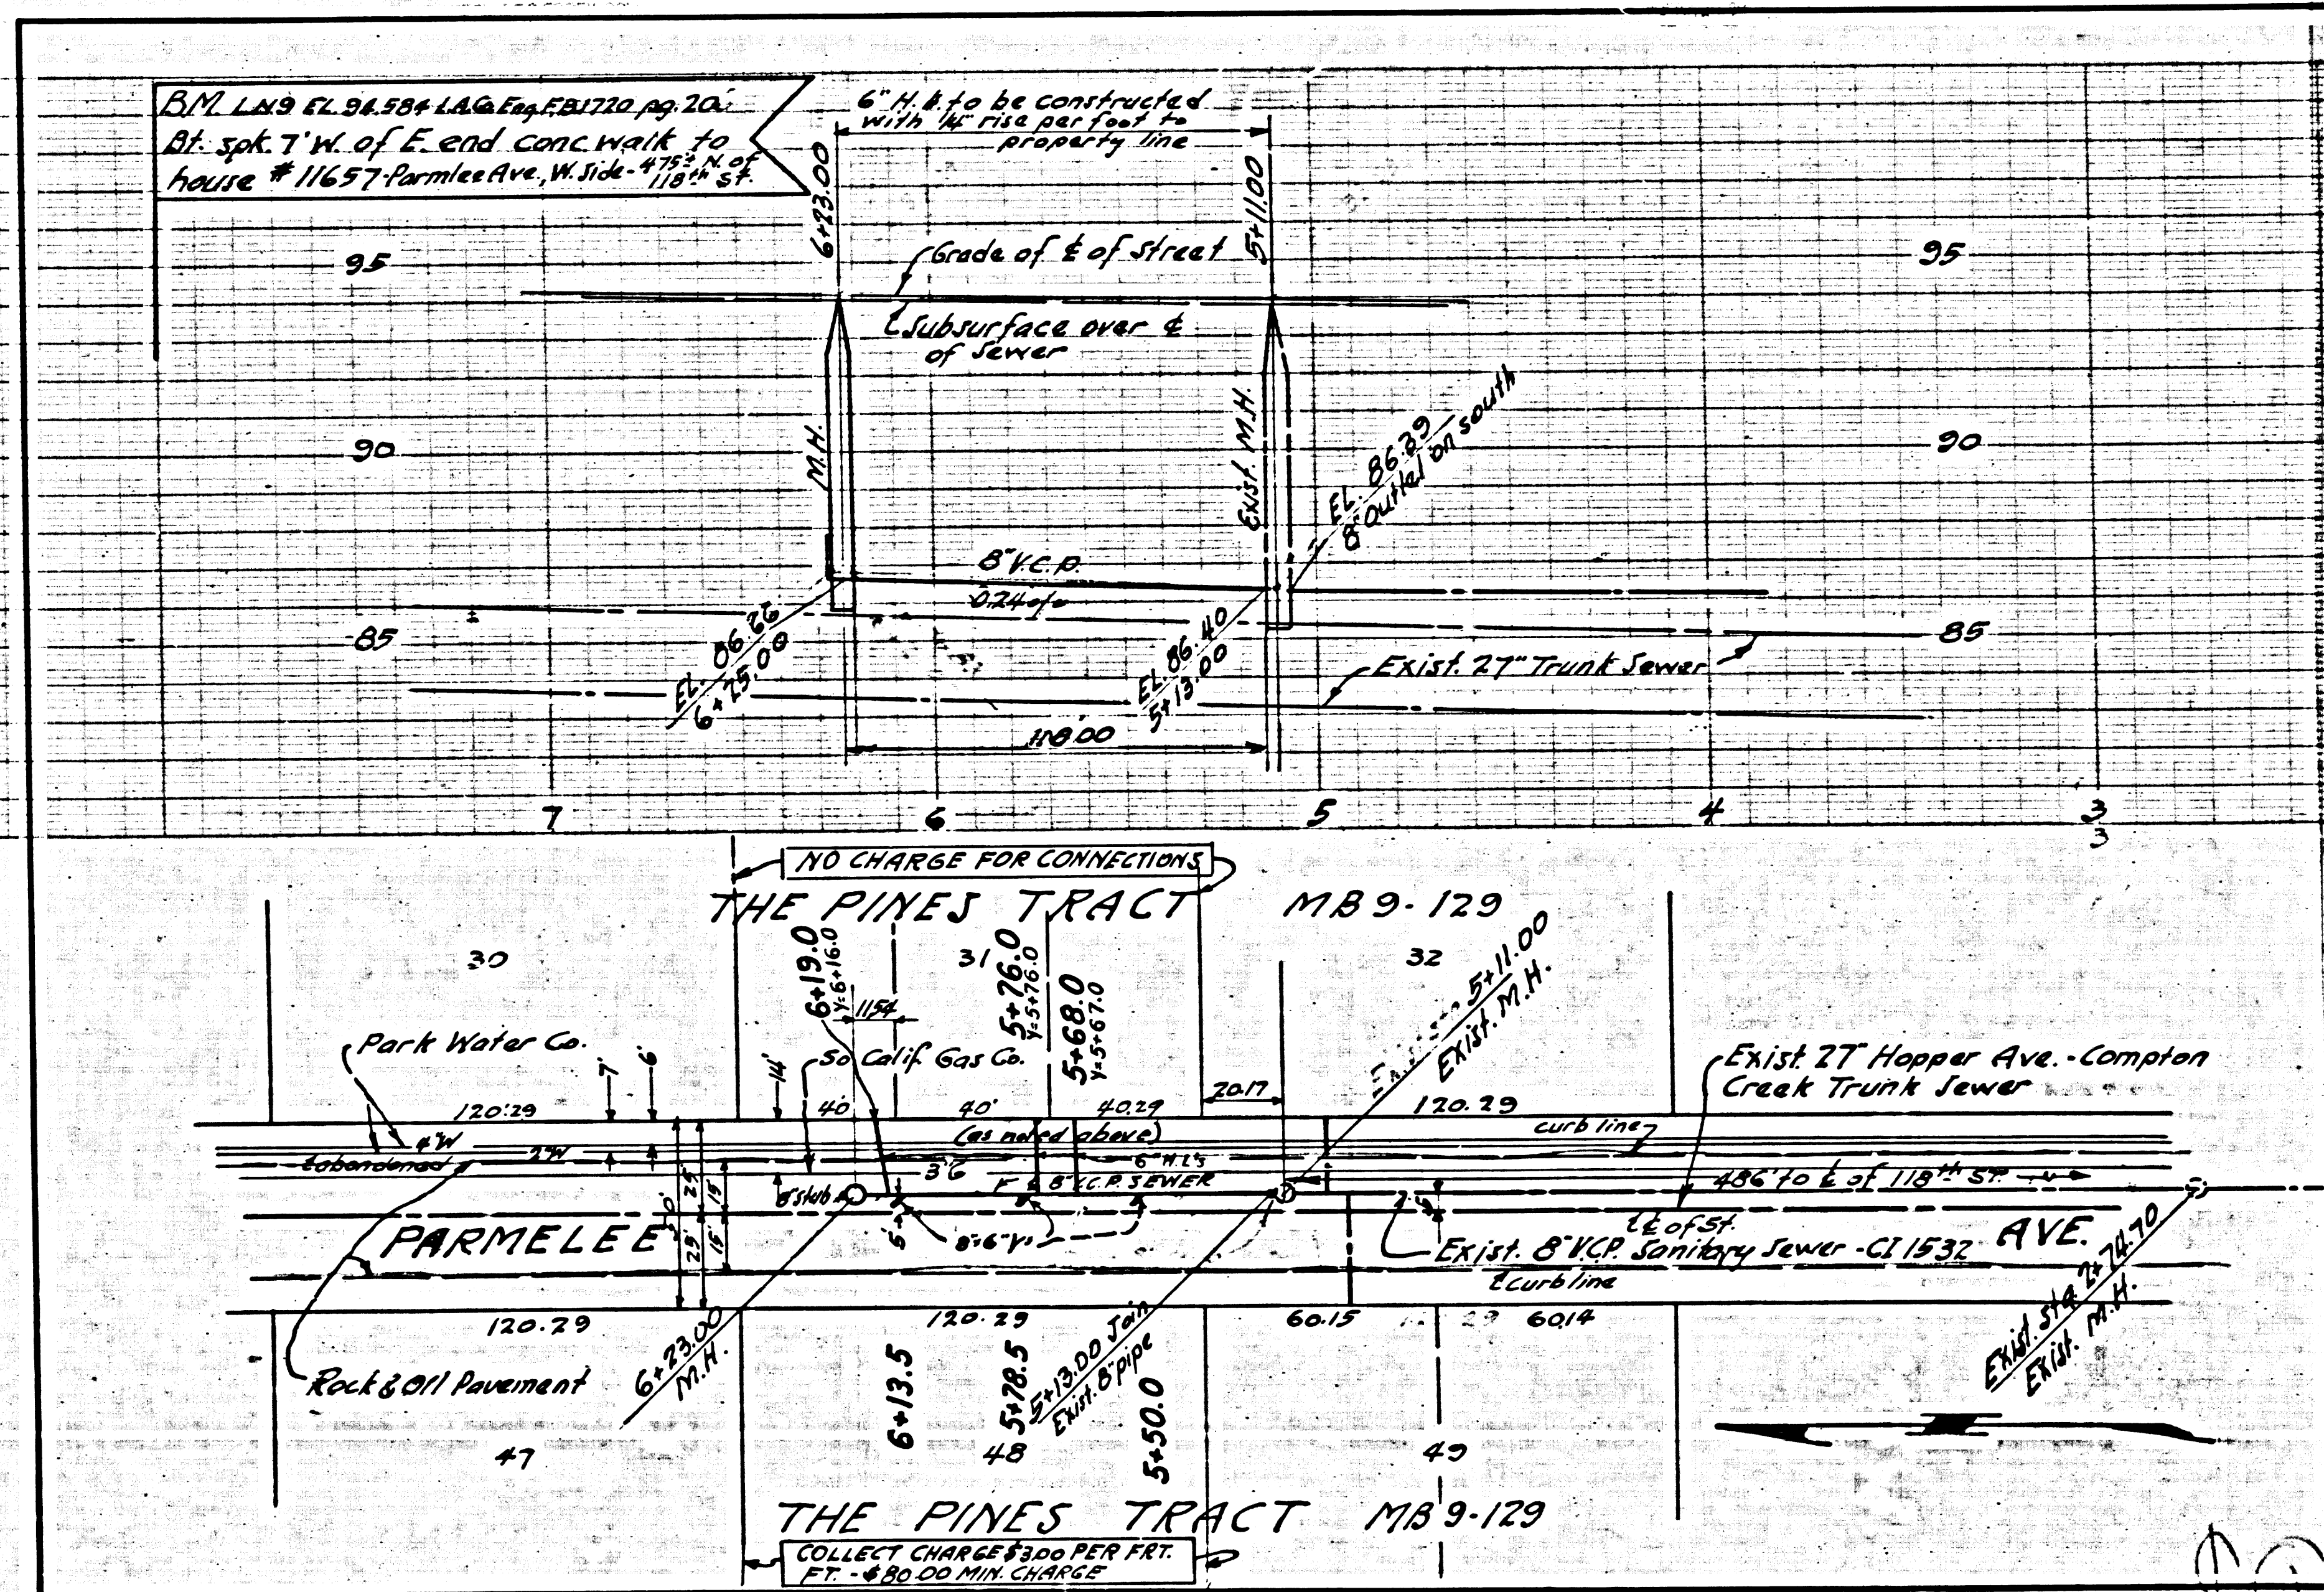 B.M. LN9 EL. 94.584 L.A.Co.Eng. F.B.1720 pg. 20:
Bt. spk. 7' W. of E. end conc walk to
house # 11657 Parmlee Ave., W. Side - 475± N. of
118th St.
6" H.L. to be constructed
with 1/4" rise per foot to
property line
6+23.00
5+11.00
95
95
Grade of ℄ of street
Subsurface over ℄
of Sewer
M.H.
Exist. M.H.
90
90
EL. 86.39
8" Outlet on south
8" V.C.P.
0.24 %
85
85
EL. 86.66
6+25.00
EL. 86.40
5+13.00
Exist. 27" Trunk Sewer
7
6
5
4
3
3
NO CHARGE FOR CONNECTIONS
THE PINES TRACT MB 9-129
30
31
32
6+19.0
Y=6+16.0
5+76.0
Y=5+76.0
5+68.0
Y=5+67.0
11.54
5+11.00
Exist. M.H.
Park Water Co.
7'
6'
14'
So Calif. Gas Co.
Exist. 27" Hopper Ave. - Compton
Creek Trunk Sewer
120.29
40
40'
40.29
20.17
120.29
(as noted above)
curb line
4"W
2"W
abandoned
3"G
6" H.L's
8" V.C.P. SEWER
486' to ℄ of 118th ST.
8" stub
25
15
50'
25'
15'
5'
8"x6" Y's
PARMELEE
AVE.
℄ of St.
Exist. 8" V.C.P. Sanitary Sewer - CI 1532
curb line
120.29
120.29
60.15
60.14
6+23.00
M.H.
Rock & Oil Pavement
6+13.5
5+78.5
5+13.00 Join
Exist. 8" pipe
5+50.0
Exist. Sta. 2+74.70
Exist. M.H.
47
48
49
THE PINES TRACT MB 9-129
COLLECT CHARGE $3.00 PER FRT.
FT. - $80.00 MIN. CHARGE